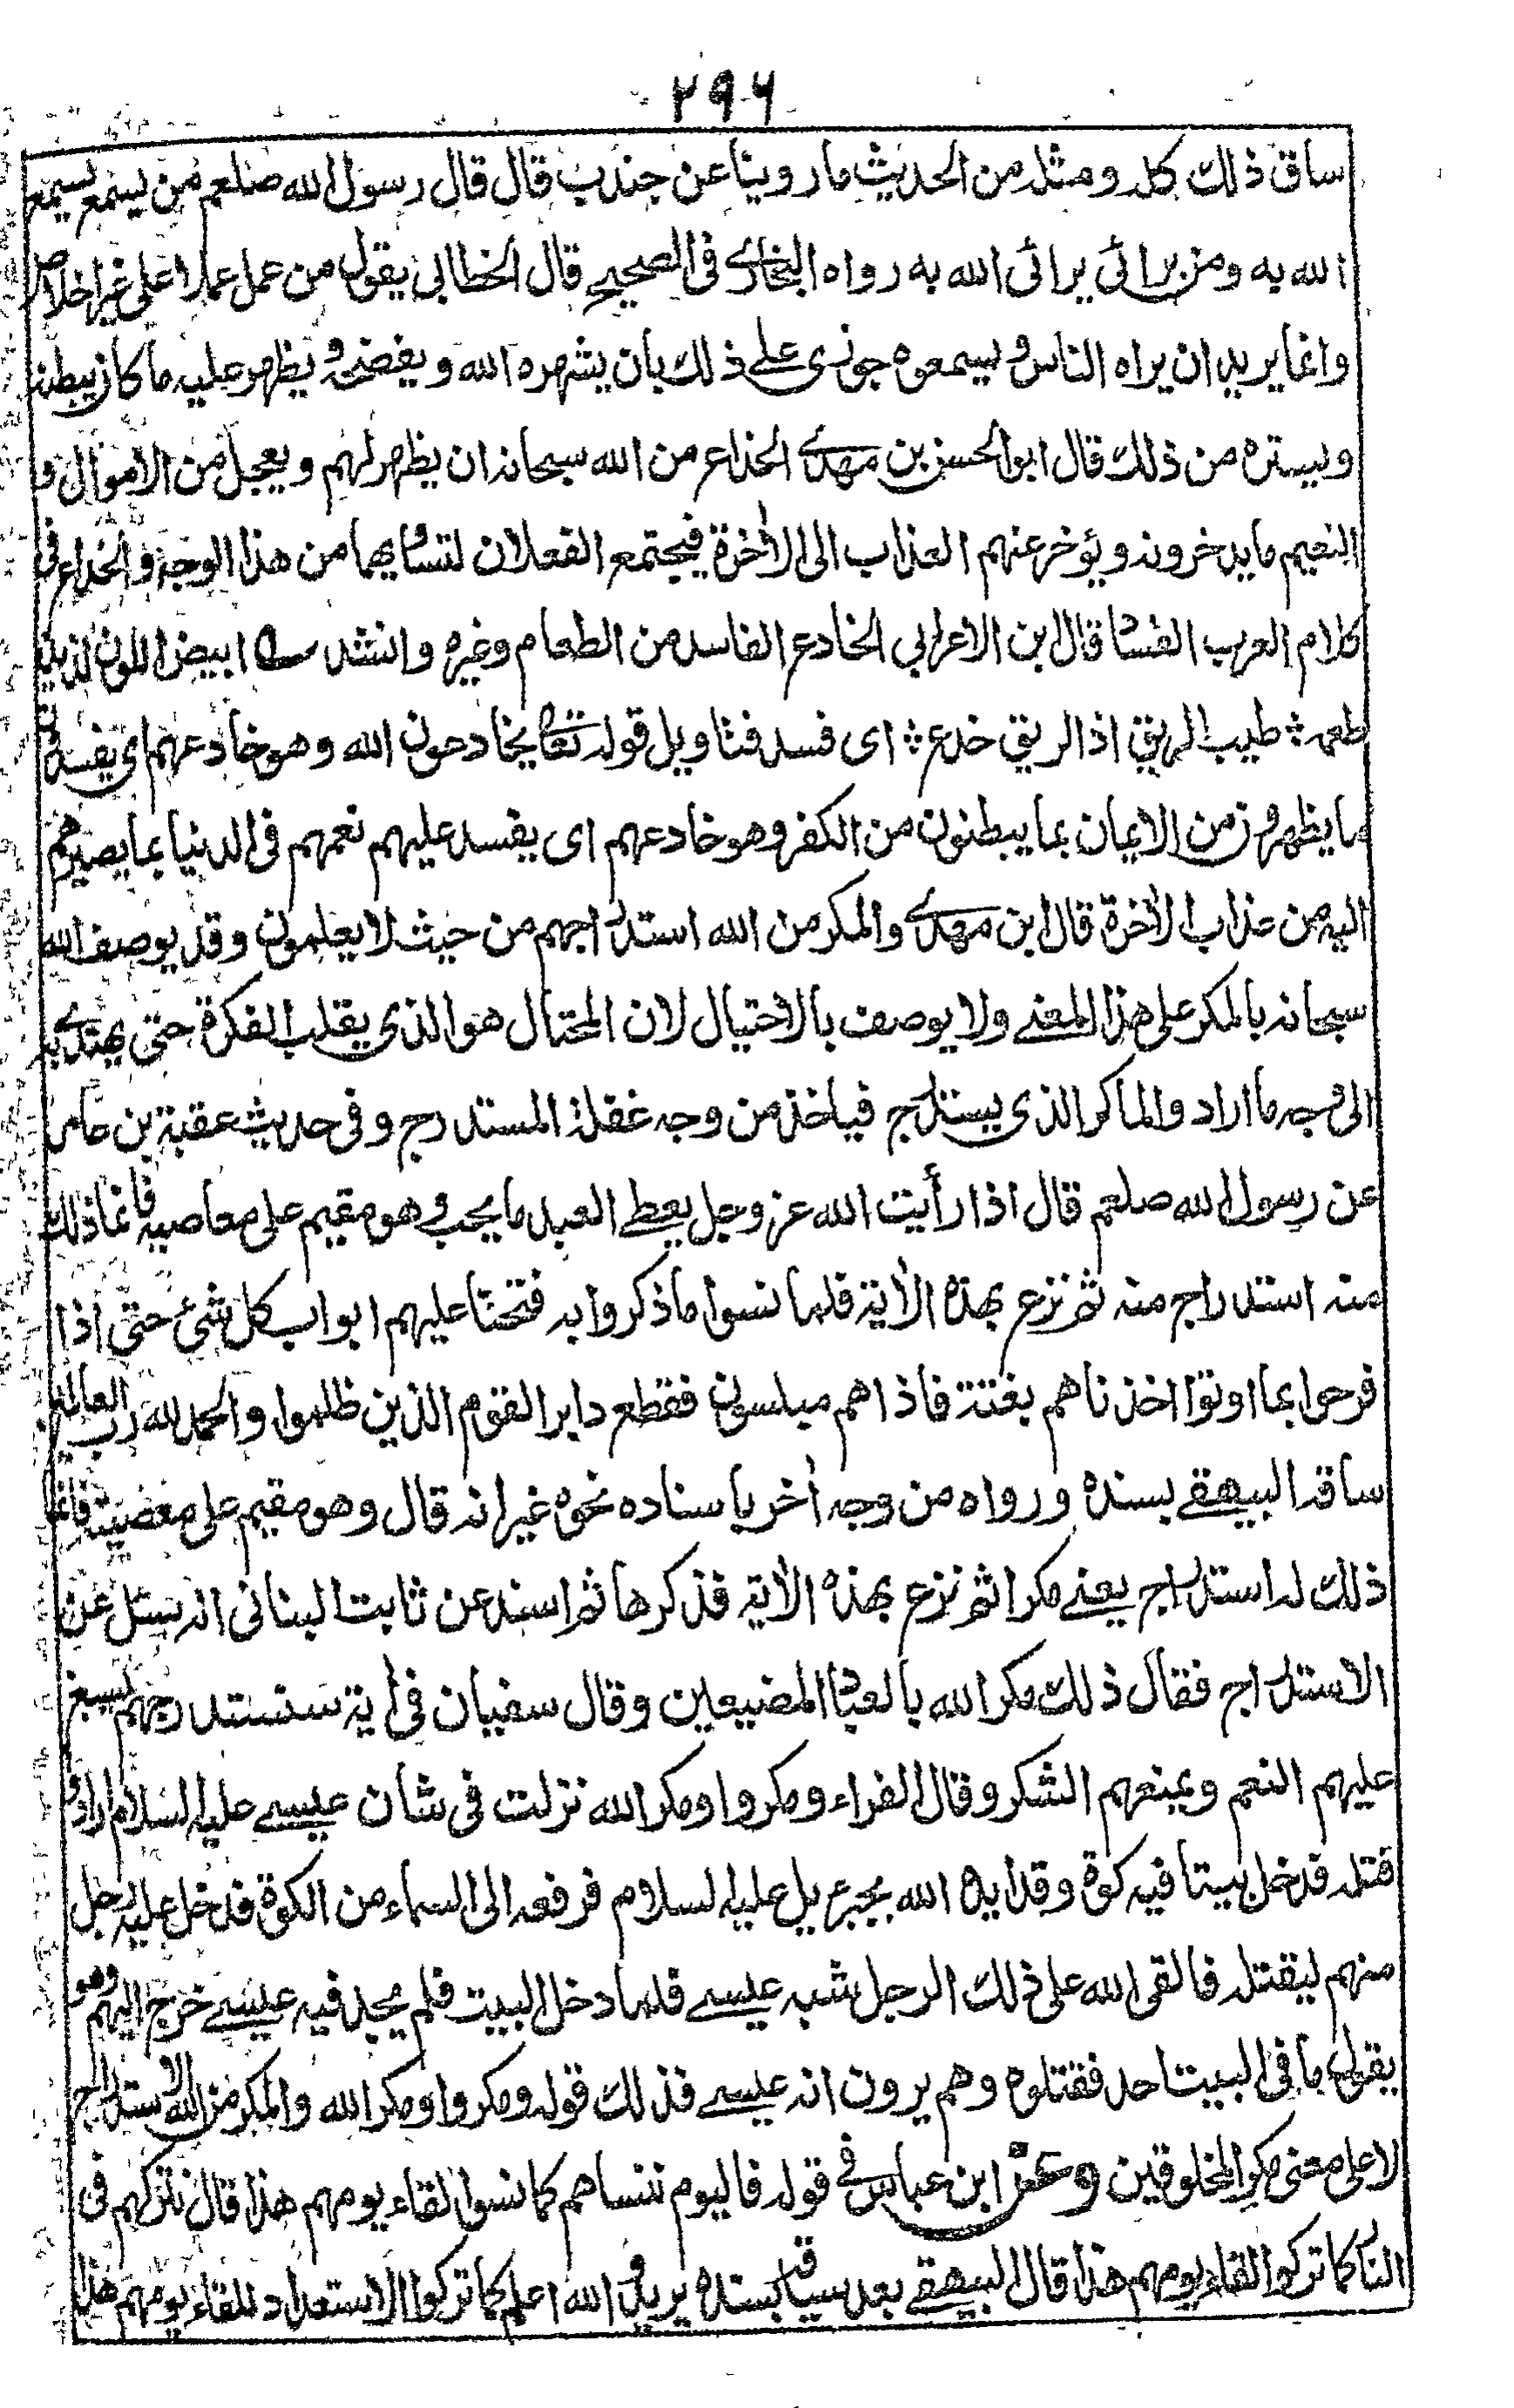 ۲۹۶
ساق ذلك كله ومثله من الحديث ما روينا عن جندب قال قال رسول الله صلعم من يسمع يسمع
الله به ومن يرائى يرائى الله به رواه البخارى فى الصحيح قال الخطابى يقول من عمل عملا على غير اخلاص
وانما يريد ان يراه الناس ويسمعوه جوزى على ذلك بان يشهره الله ويفضحه ويظهر عليه ما كان يبطنه
ويستره من ذلك قال ابو الحسن بن مهدى الخداع من الله سبحانه ان يظهر لهم ويعجل من الاموال و
النعيم ما يدخرونه ويؤخر عنهم العذاب الى الأخرة فيجتمع الفعلان لتساويهما من هذا الوجه والخداع فى
كلام العرب الفساد قال ابن الاعرابى الخادع الفاسد من الطعام وغيره وانشد ابيض اللون لذيذ
طعمه طيب الريق اذا الريق خدع اى فسد فتاويل قوله تعالى يخادعون الله وهو خادعهم اى يفسدون
ما يظهرون من الايمان بما يبطنون من الكفر وهو خادعهم اى يفسد عليهم نعمهم فى الدنيا بما يصيرهم
اليه من عذاب الأخرة قال ابن مهدى والمكر من الله استدراجهم من حيث لا يعلمون وقد يوصف الله
سبحانه بالمكر على هذا المعنى ولا يوصف بالاحتيال لان المحتال هو الذى يقلب الفكرة حتى يهتدى به
الى وجه ما اراد والماكر الذى يستدرج فياخذ من وجه غفلة المستدرج وفى حديث عقبة بن عامر
عن رسول الله صلعم قال اذا رأيت الله عز وجل يعطى العبد ما يحب وهو مقيم على معاصيه فانما ذلك
منه استدراج منه ثم نزع بهذه الأية فلما نسوا ما ذكروا به فتحنا عليهم ابواب كل شئ حتى اذا
فرحوا بما اوتوا اخذناهم بغتة فاذا هم مبلسون فقطع دابر القوم الذين ظلموا والحمد لله رب العالمين
ساقه البيهقى بسنده ورواه من وجه أخر باسناده نحوه غير انه قال وهو مقيم على معصيته فانما
ذلك له استدراج يعنى مكرا ثم نزع بهذه الأية فذكرها ثم اسند عن ثابت البنانى انه سئل عن
الاستدراج فقال ذلك مكر الله بالعباد المضيعين وقال سفيان فى أية سنستدرجهم نسبغ
عليهم النعم ويمنعهم الشكر وقال الفراء ومكروا ومكر الله نزلت فى شأن عيسى عليه السلام ارادوا
قتله فدخل بيتا فيه كوة وقد ايده الله بجبرئيل عليه السلام فرفعه الى السماء من الكوة فدخل عليه رجل
منهم ليقتله فالقى الله على ذلك الرجل شبه عيسى فلما دخل البيت فلم يجد فيه عيسى خرج اليهم وهو
يقول ما فى البيت احد فقتلوه وهم يرون انه عيسى فذلك قوله ومكروا ومكر الله والمكر من الله الاستدراج
لا على معنى مكر المخلوقين وعن ابن عباس فى قوله فاليوم ننساهم كما نسوا لقاء يومهم هذا قال نتركهم فى
النار كما تركوا لقاء يومهم هذا قال البيهقى بعد سياقه بسنده يريد والله اعلم كما تركوا الاستعداد للقاء يومهم هذا